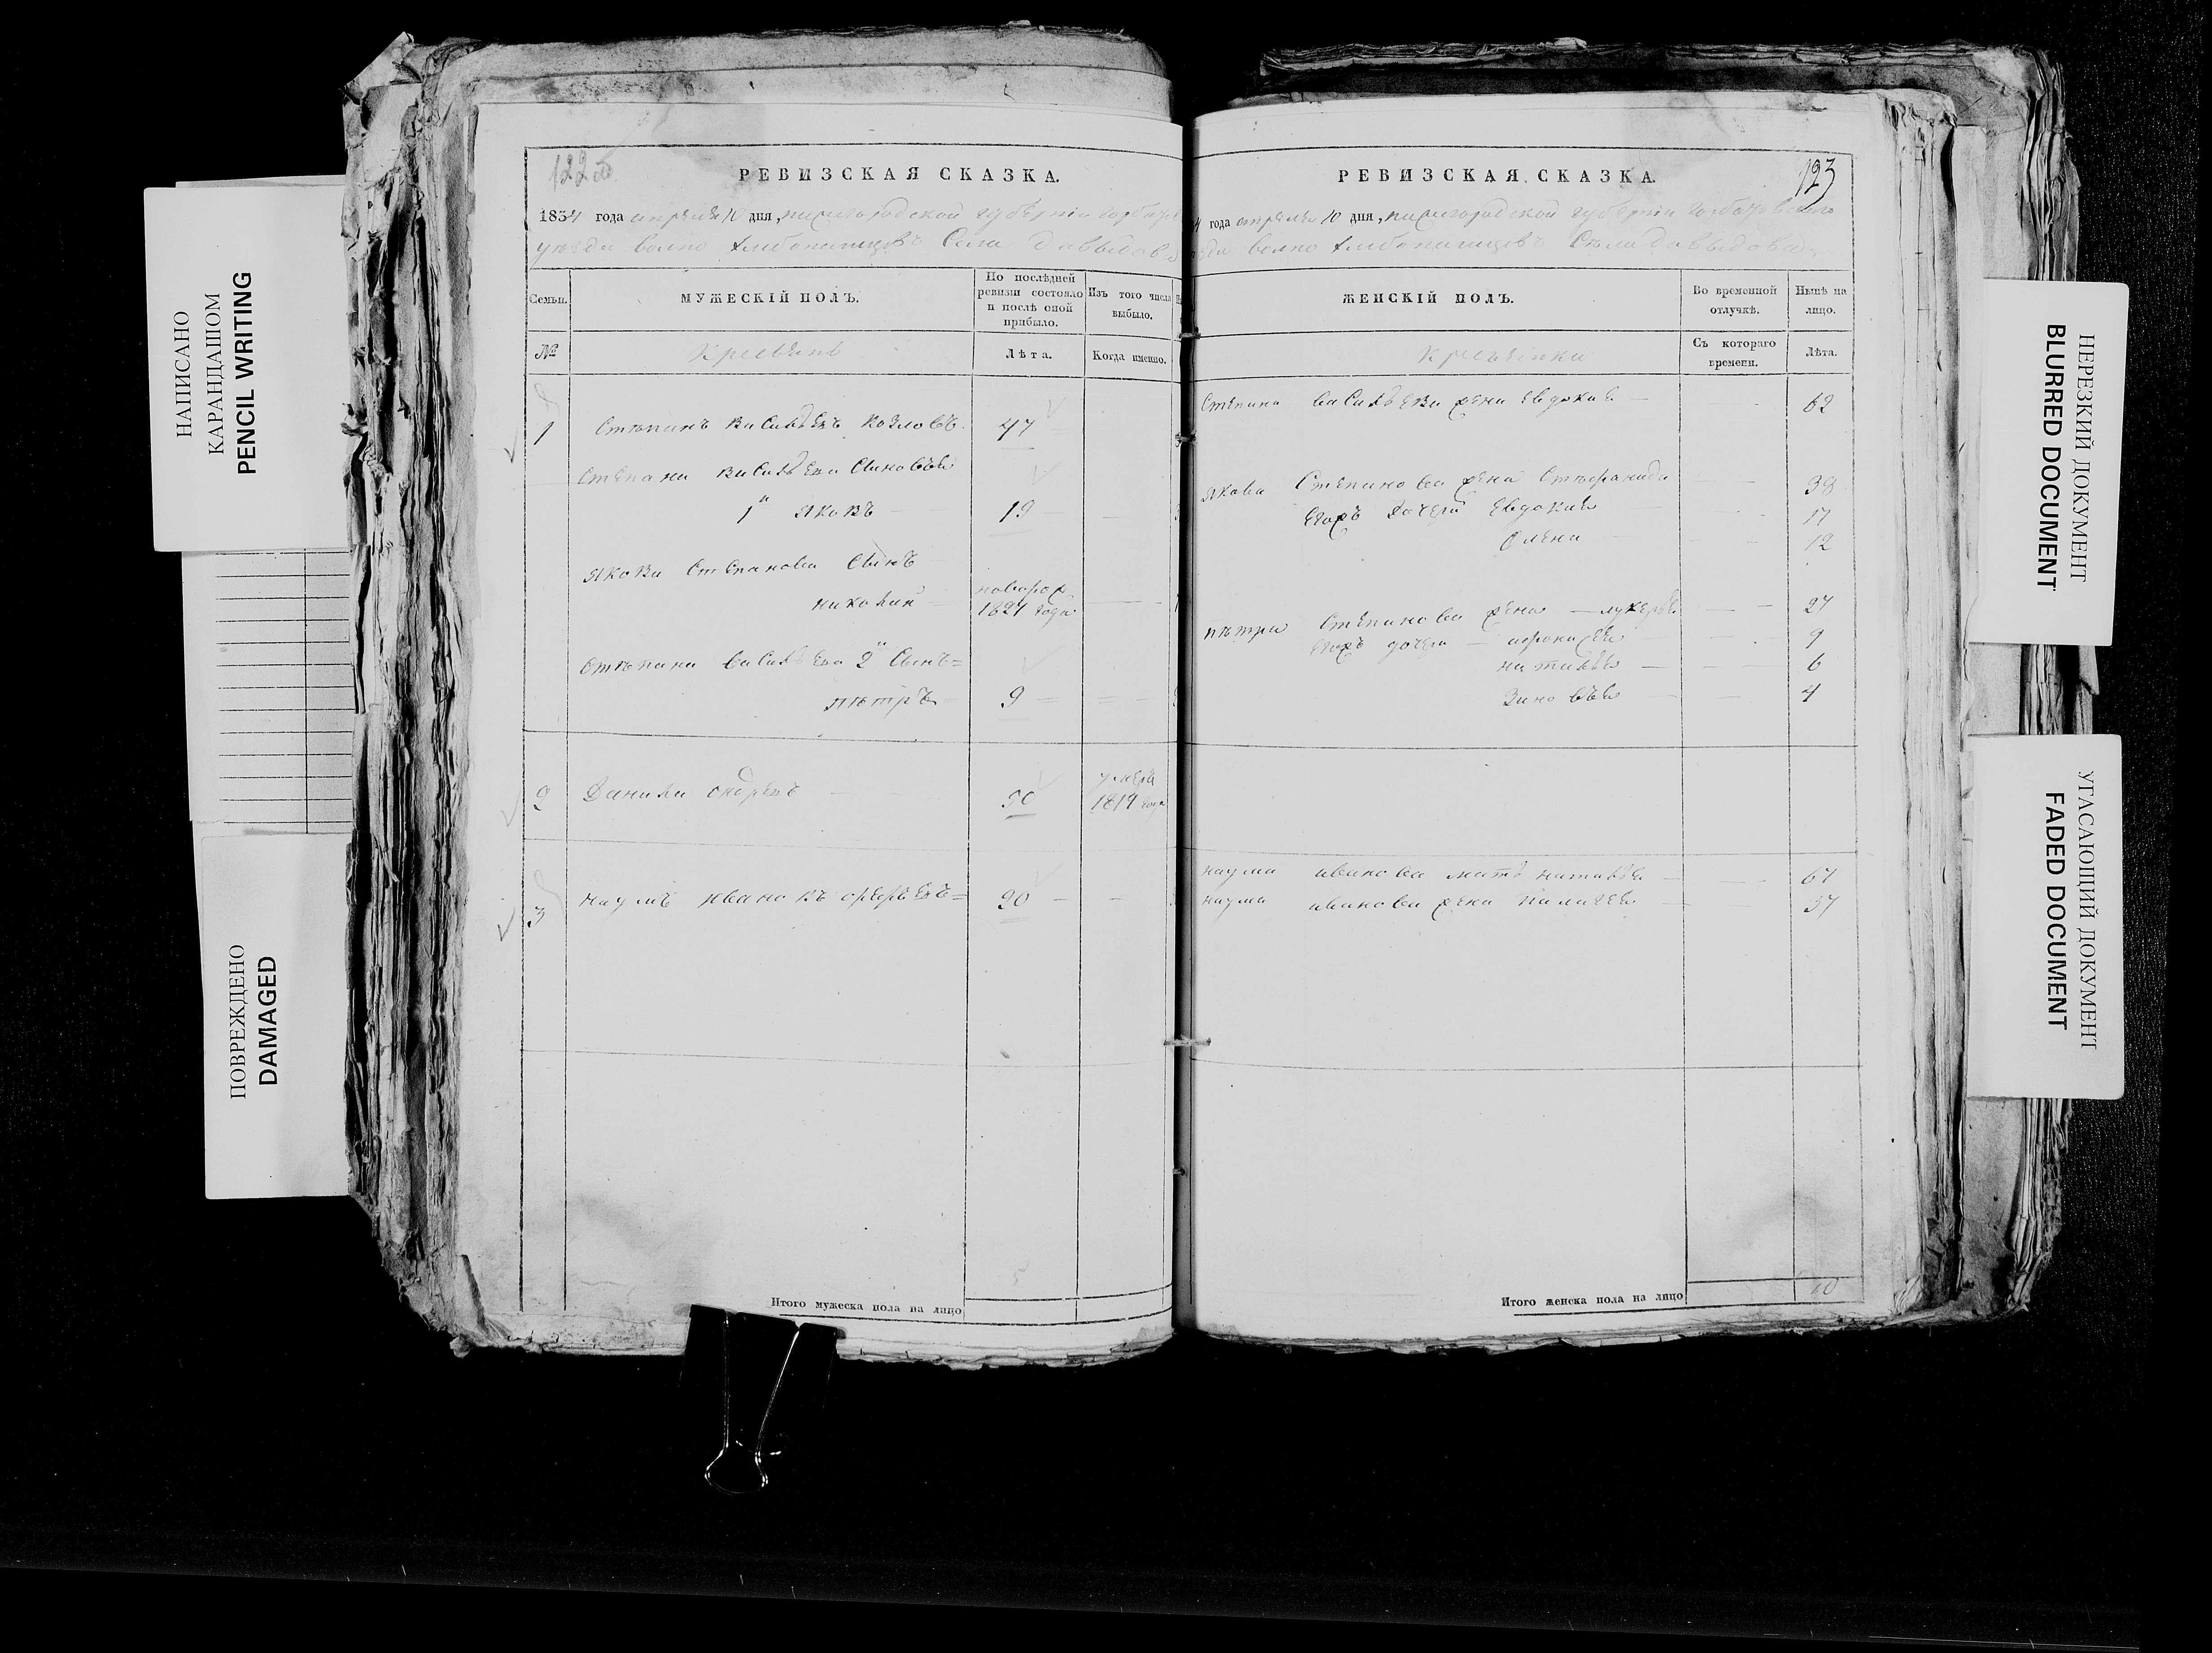 НАПИСАНО
КАРАНДАШОМ
PENCIL WRITING
ПОВРЕЖДЕНО
DAMAGED
122об
РЕВИЗСКАЯ СКАЗКА.
1834 года апреля 10 дня, нижегородской губернiи горбатов
уезда волно хлебопашцовъ Села давыдова
Семьи.
МУЖЕСКІЙ ПОЛЪ.
По послѣдней ревизіи состояло и послѣ оной прибыло.
Изъ того числа выбыло.
№
Лѣта.
Когда именно.
1 Степанъ васильевъ козловъ 47
Степана васильева Сыновья
1й яковъ 19
якова Степанова Сынъ
николай новорож. 1827 года
Степана васильева 2й Сынъ
петръ 9
2 Данила андреевъ 50 умеръ 1819 года
3 наумъ ивановъ 20
Итого мужеска пола на лицо
123
РЕВИЗСКАЯ СКАЗКА.
года апреля 10 дня, нижегородской губернiи горбатовского
волно хлебопашцовъ Села давыдова
ЖЕНСКІЙ ПОЛЪ.
Во временной отлучкѣ.
Нынѣ на лицо.
Съ котораго времени.
Лѣта.
Степана васильева жена евдокия 62
якова Степанова жена Стефанида 38
егожъ дочери евдокия 17
олена 12
петра Степанова жена лукерья 27
егожъ дочери 9
наталья 6
Зиновья 4
наума иванова мать наталья 67
наума иванова жена палагея 37
Итого женска пола на лицо 10
НЕРЕЗКИЙ ДОКУМЕНТ
BLURRED DOCUMENT
УГАСАЮЩИЙ ДОКУМЕНТ
FADED DOCUMENT